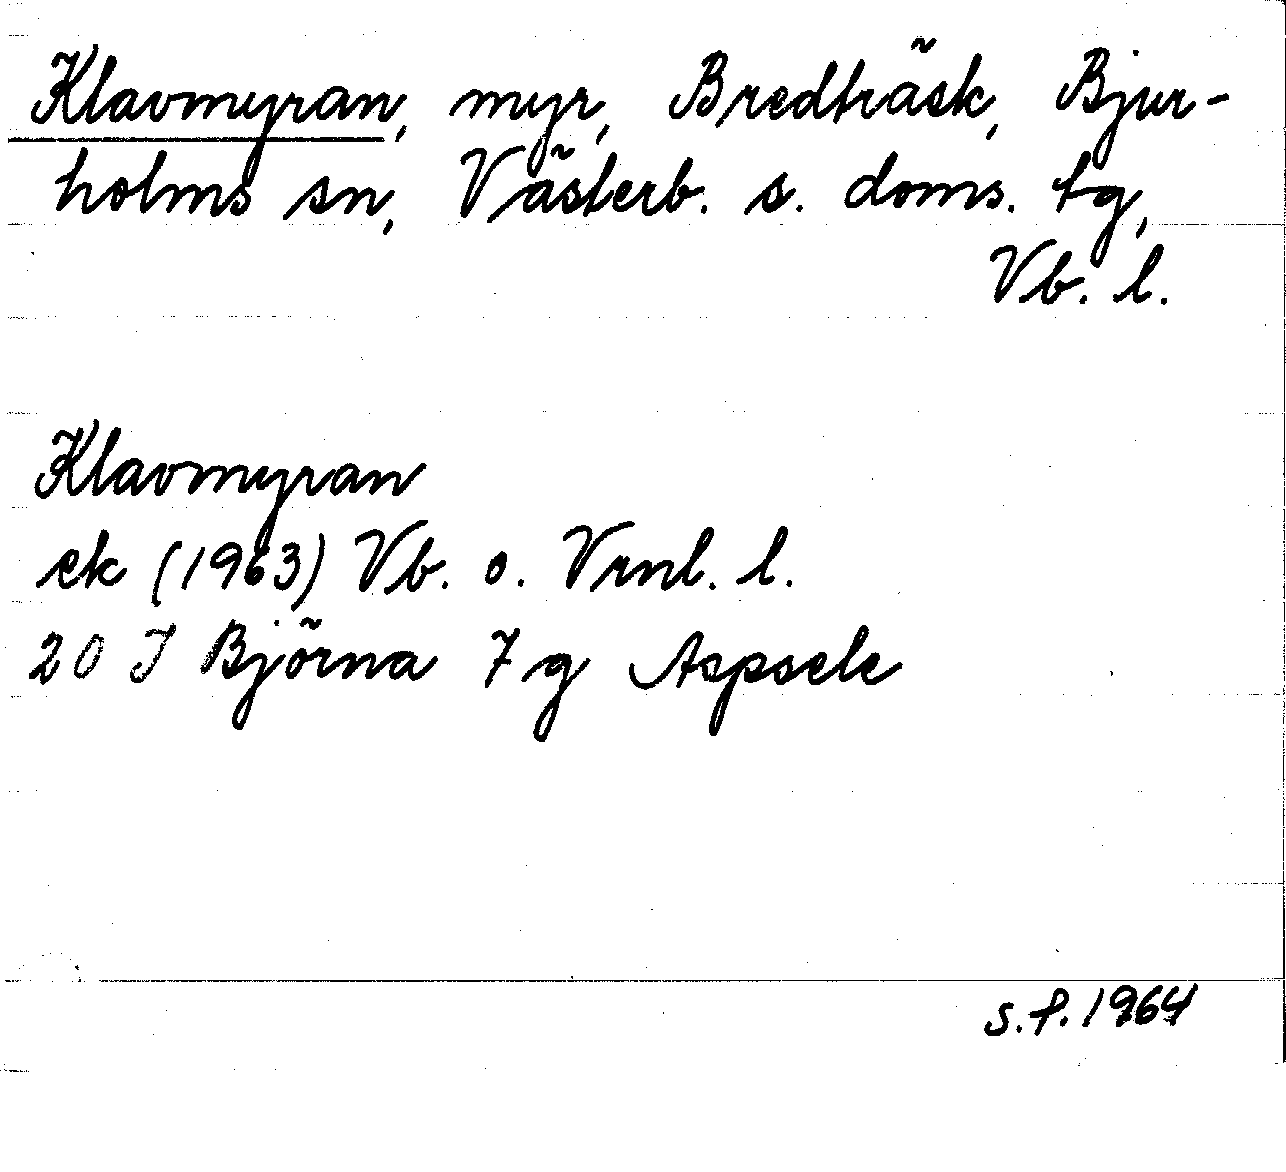 Klavmyran, myr, Bredträsk, Bjur-
holms sn, Västerb. s. doms. tg,
Vb. l.
Klavmyran
ek (1963) Vb. o. Vrnl. l.
20 J Björna 7 g Aspsele
s.f. 1964